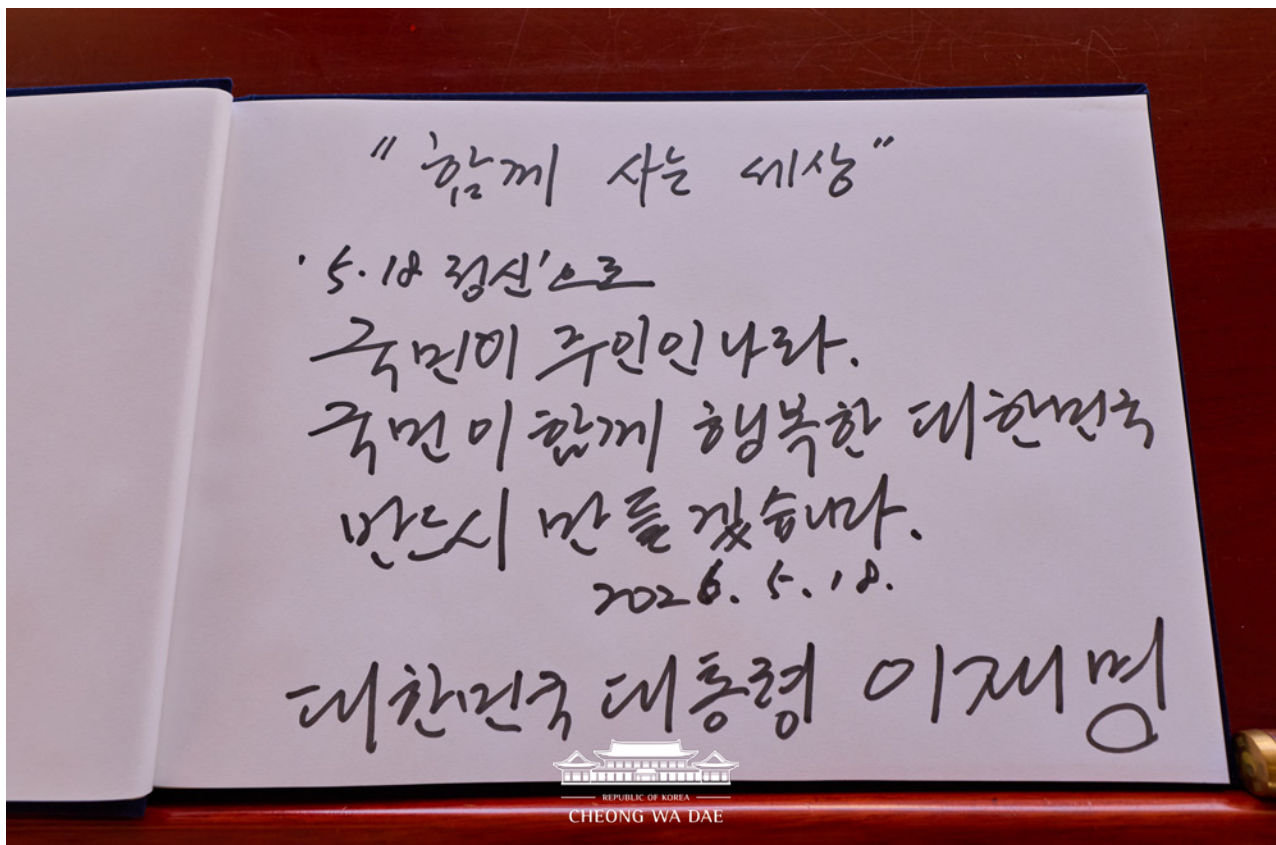 "함께 사는 세상"
'5.18 정신'으로
국민이 주인인 나라.
국민이 함께 행복한 대한민국
반드시 만들겠습니다.
2026. 5. 18.
대한민국 대통령 이재명
REPUBLIC OF KOREA
CHEONG WA DAE